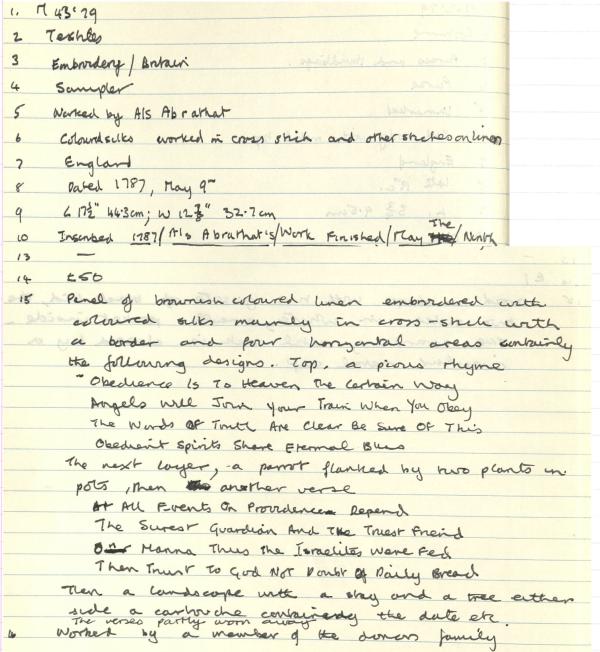 1. M 43'29
2 Textiles
3 Embroidery / Britain
4 Sampler
5 Worked by Als Abrathat
6 Coloured silks worked in cross stich and other stiches on linen
7 England
8 Dated 1787, May 9th
9 L 17½" 44.3cm; W 12⅞" 32.7cm
10 Inscribed 1787/Als Abrathat's/Work Finished/May The/Ninth
13 —
14 £50
15 Panel of brownish coloured linen embroidered with
coloured silks mainly in cross-stich with
a border and four horizontal areas containing
the following designs. Top, a pious rhyme
"Obedience Is To Heaven The Certain Way
Angels Will Join Your Train When You Obey
The Words Of Truth Are Clear Be Sure Of This
Obedient Spirits Share Eternal Bliss
The next layer, a parrot flanked by two plants in
pots, then another verse
At All Events On Providence Depend
The Surest Guardian And The Truest Freind
On Manna Thus The Israelites Were Fed
Then Trust To God Not Doubt Of Daily Bread
Then a landscape with a stag and a tree either
side a cartouche containing the date etc.
The verses partly worn away
16 Worked by a member of the donors family